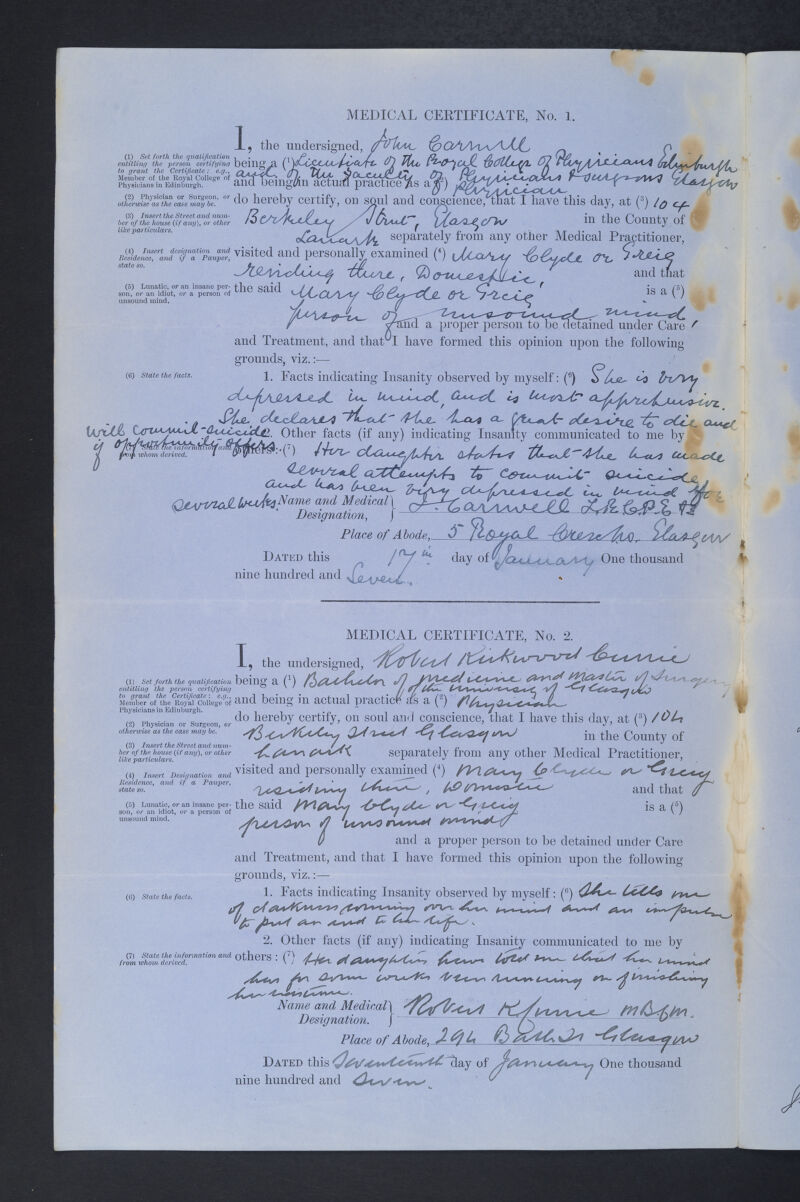 MEDICAL CERTIFICATE, No. 1.
I, the undersigned, John Carswell
(1) Set forth the qualification entitling the person certifying to grant the Certificate: e.g., Member of the Royal College of Physicians in Edinburgh.
being a (1) Licentiate of the Royal College of Physicians Edinburgh
and of the Faculty of Physicians & Surgeons Glasgow
and being in actual practice as a (2) Physician
(2) Physician or Surgeon, or otherwise as the case may be.
do hereby certify, on soul and conscience, that I have this day, at (3) 104
(3) Insert the Street and number of the house (if any), or other like particulars.
Berkeley Street, Glasgow in the County of
Lanark separately from any other Medical Practitioner,
(4) Insert designation and Residence, and if a Pauper, state so.
visited and personally examined (4) Mary Clyde or Greig
residing there, Domestic, and that
(5) Lunatic, or an insane person, or an idiot, or a person of unsound mind.
the said Mary Clyde or Greig is a (5)
person of unsound mind
and a proper person to be detained under Care
and Treatment, and that I have formed this opinion upon the following
grounds, viz.:—
(6) State the facts.
1. Facts indicating Insanity observed by myself: (6) She is very
depressed in mind, and is most apprehensive.
She declares that she has a great desire to die and
will commit suicide
if opportunity offers
2. Other facts (if any) indicating Insanity communicated to me by
(7) State the information and from whom derived.
others: (7) Her daughter states that she has made
several attempts to commit suicide
and has been very depressed in mind for
several weeks.
Name and Medical Designation, J. Carswell L.R.C.P.E &c
Place of Abode, 5 Royal Cresc. Wo. Glasgow
DATED this 17th day of January One thousand
nine hundred and Seven.
MEDICAL CERTIFICATE, No. 2.
I, the undersigned, Robert Kirkwood Currie
(1) Set forth the qualification entitling the person certifying to grant the Certificate: e.g., Member of the Royal College of Physicians in Edinburgh.
being a (1) Bachelor of Medicine and Master of Surgery
of the University of Glasgow
and being in actual practice as a (2) Physician
(2) Physician or Surgeon, or otherwise as the case may be.
do hereby certify, on soul and conscience, that I have this day, at (3) 104
(3) Insert the Street and number of the house (if any), or other like particulars.
Berkeley Street Glasgow in the County of
Lanark separately from any other Medical Practitioner,
(4) Insert Designation and Residence, and if a Pauper, state so.
visited and personally examined (4) Mary Clyde or Greig
residing there, Domestic and that
(5) Lunatic, or an insane person, or an idiot, or a person of unsound mind.
the said Mary Clyde or Greig is a (5)
person of unsound mind
and a proper person to be detained under Care
and Treatment, and that I have formed this opinion upon the following
grounds, viz.:—
(6) State the facts.
1. Facts indicating Insanity observed by myself: (6) She tells me
of darkness coming over her mind and an impulse
to put an end to her life.
2. Other facts (if any) indicating Insanity communicated to me by
(7) State the information and from whom derived.
others: (7) Her daughters have told me that her mind
has for some weeks been running on finishing
her
Name and Medical Designation. Robert K Currie MB CM.
Place of Abode, 294 Bath St Glasgow
DATED this Seventeenth day of January One thousand
nine hundred and Seven.